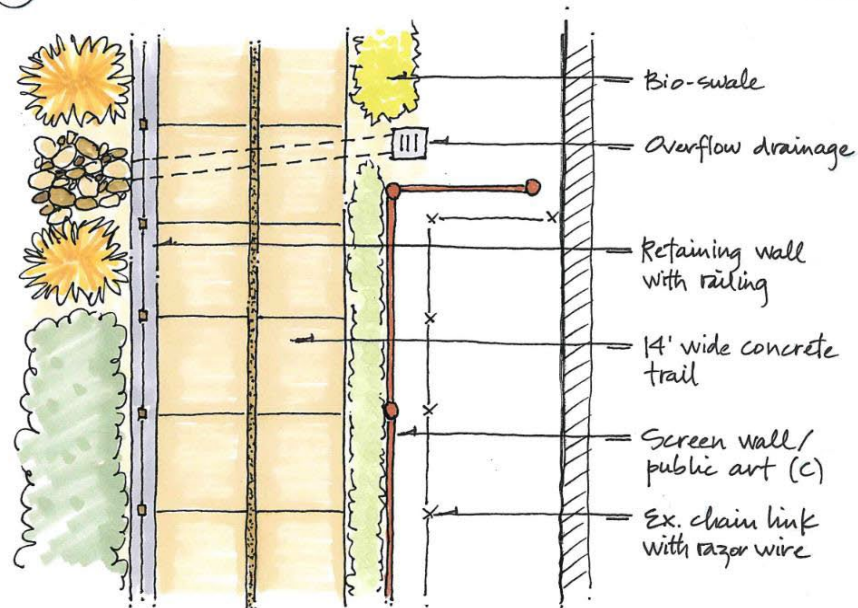 Bio-swale
Overflow drainage
Retaining wall
with railing
14' wide concrete
trail
Screen wall/
public art (C)
Ex. chain link
with razor wire